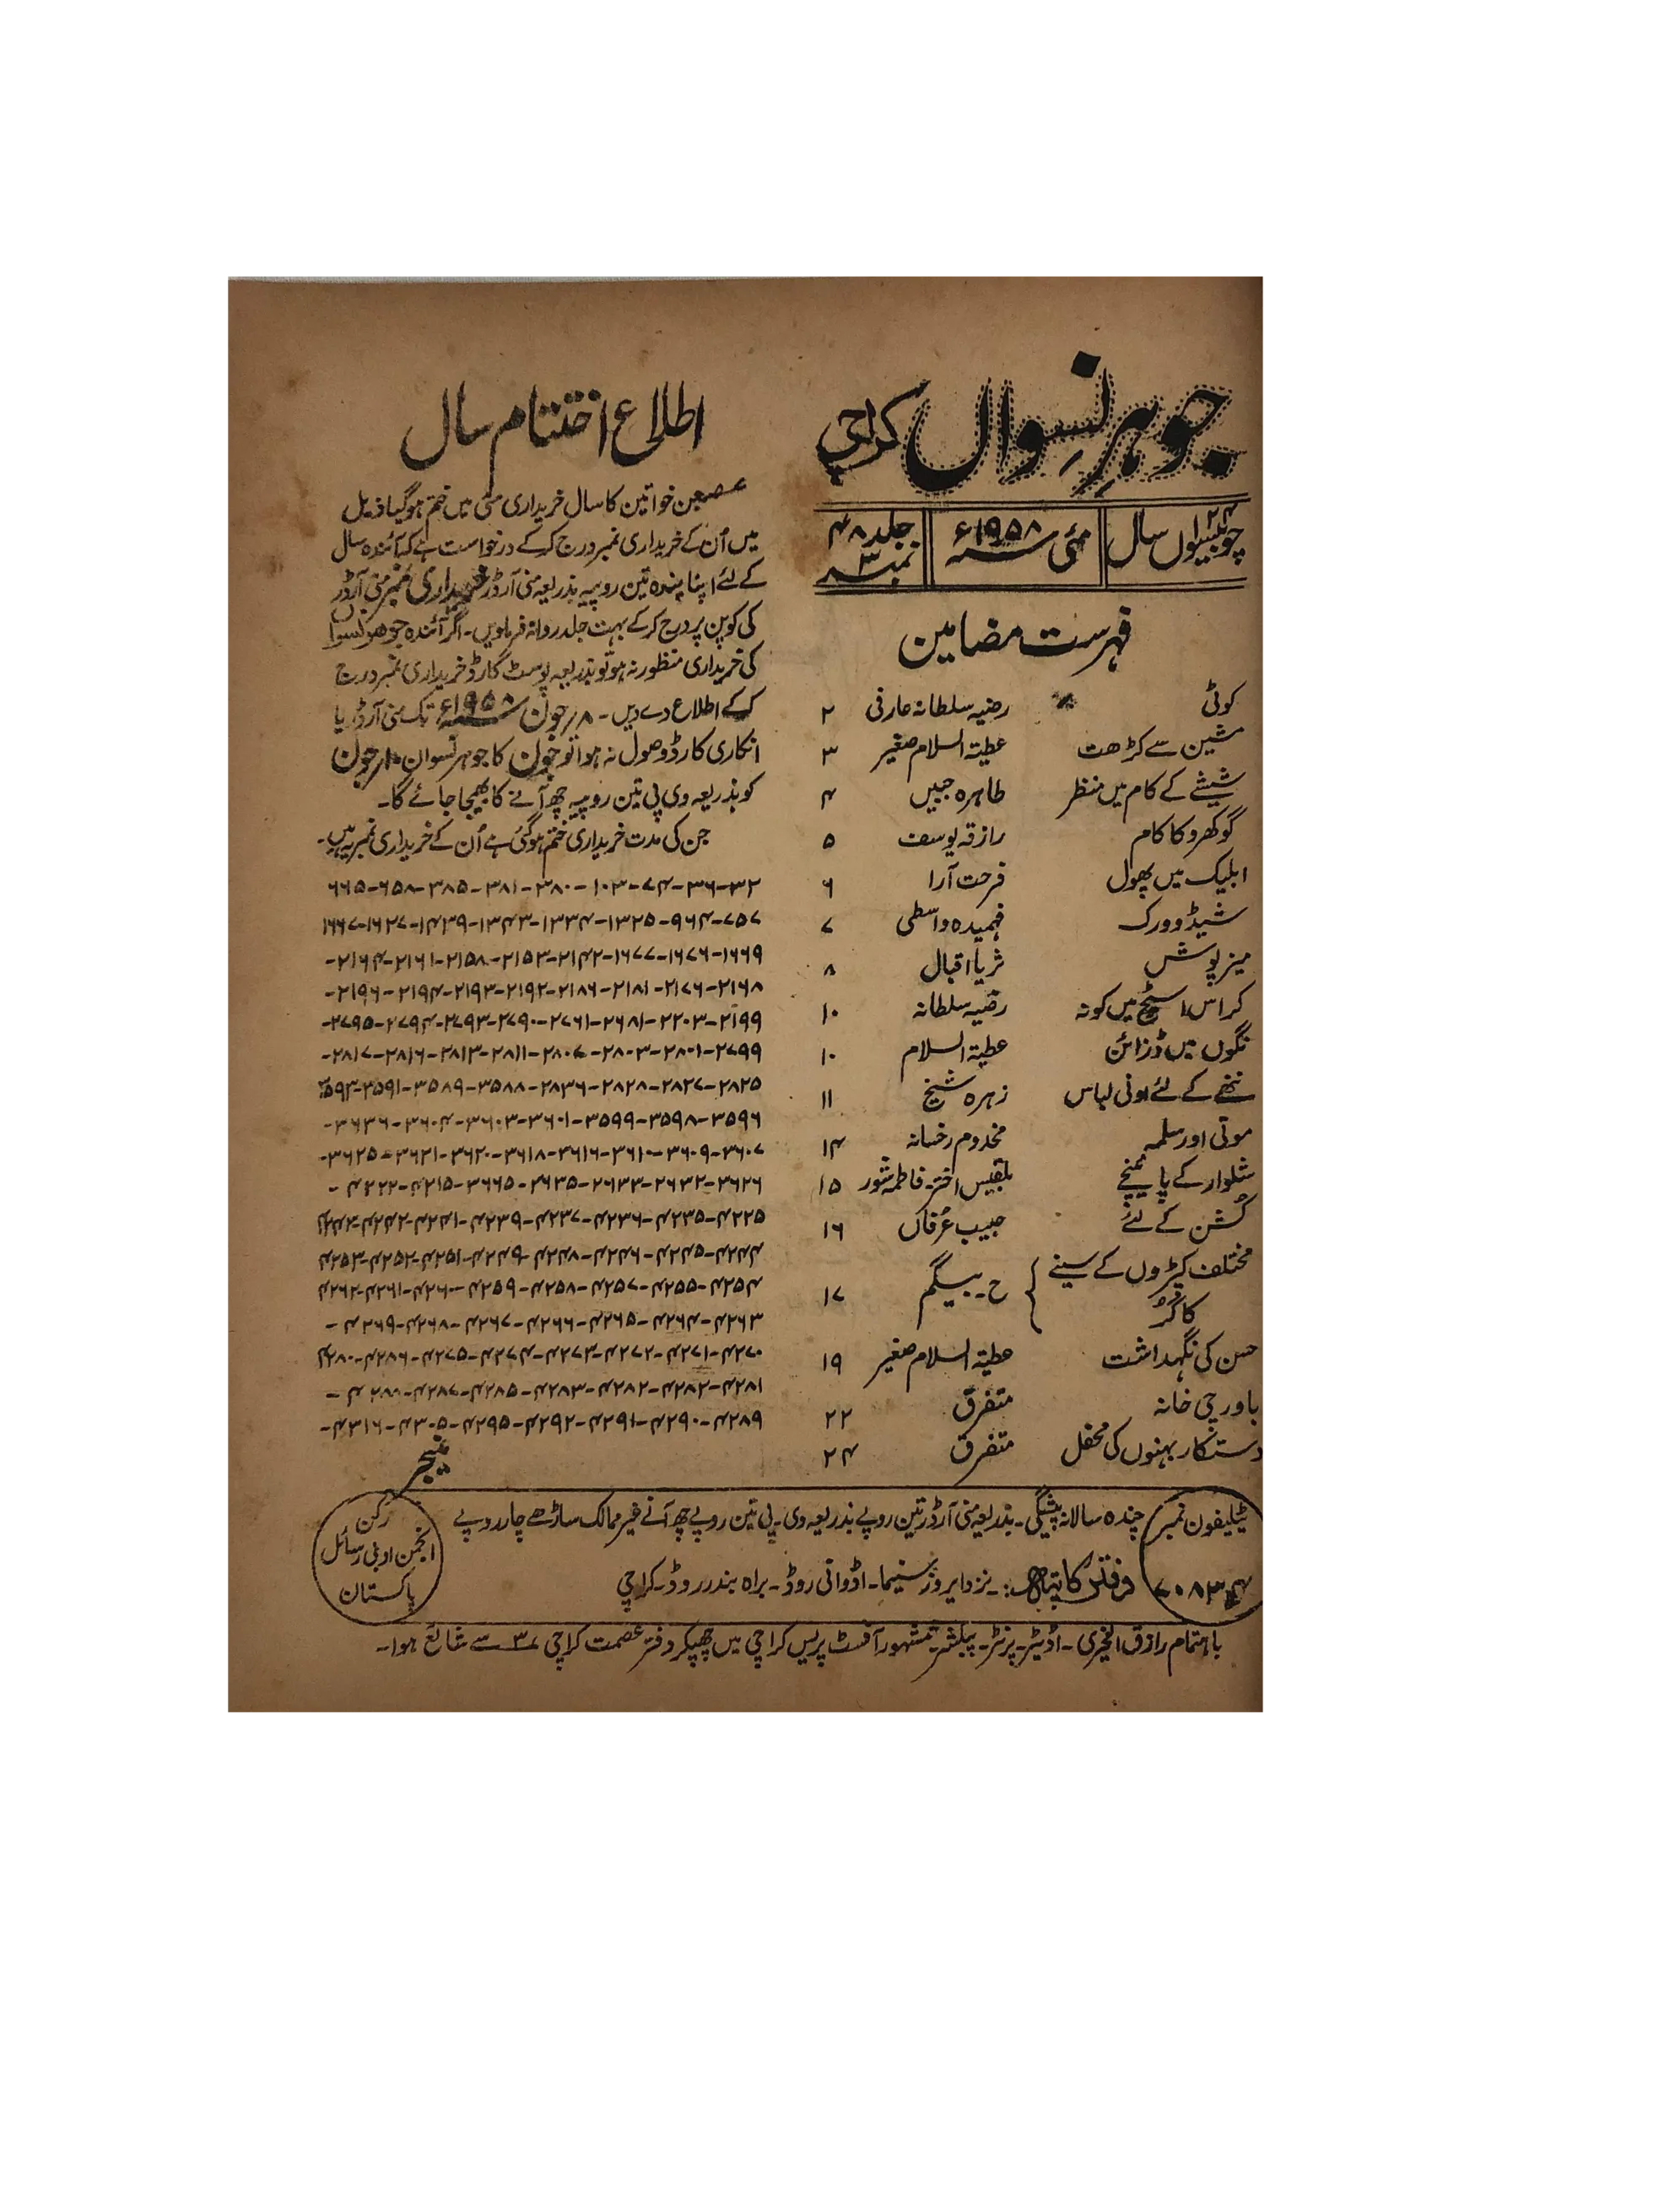 جوہرِ نسواں کراچی
چوبیسواں سال ۲۴
مئی سنہ ۱۹۵۸ء
جلد ۴۸
نمبر ۳
فہرست مضامین
کوٹی رضیہ سلطانہ عارفی ۲
مشین سے کڑھت عطیۃ السلام صغیر ۳
شیشے کے کام میں منظر طاہرہ جبیں ۴
گوکھرو کا کام رازقہ یوسف ۵
اپلیک میں پھول فرحت آرا ۶
شیڈو ورک فہمیدہ واسطی ۷
میز پوش ثریا اقبال ۸
کراس اسٹچ میں کونہ رضیہ سلطانہ ۱۰
نگوں میں ڈزائن عطیۃ السلام ۱۰
ننھے کے لئے اونی لباس زہرہ شیخ ۱۱
موتی اور سلمہ مخدوم رخسانہ ۱۴
شلوار کے پائینچے بلقیس اختر۔ فاطمہ شور ۱۵
کشن کے لئے حبیب عرفاں ۱۶
مختلف کپڑوں کے سینے
کا گر ح۔ بیگم ۱۷
حسن کی نگہداشت عطیۃ السلام صغیر ۱۹
باورچی خانہ متفرق ۲۲
دستکار بہنوں کی محفل متفرق ۲۴
اطلاع اختتام سال
جن خواتین کا سال خریداری مئی میں ختم ہوگیا ذیل
میں اُن کے خریداری نمبر درج کرکے درخواست ہے کہ آئندہ سال
کے لئے اپنا چندہ تین روپیہ بذریعہ منی آرڈر خریداری نمبر منی آرڈر
کی کوپن پر درج کرکے بہت جلد روانہ فرماویں۔ اگر آئندہ جوھر نسواں
کی خریداری منظور نہ ہو تو بذریعہ پوسٹ کارڈ خریداری نمبر درج
کرکے اطلاع دے دیں۔ ۸ رجون سنہ ۱۹۵۸ء تک منی آرڈر یا
انکاری کارڈ وصول نہ ہوا تو جون کا جوہر نسوان ۱۰ رجون
کو بذریعہ وی پی تین روپیہ چھ آنے کا بھیجا جائے گا۔
جن کی مدت خریداری ختم ہوگئی ہے اُن کے خریداری نمبر یہ ہیں۔
۳۲-۳۶-۷۴-۱۰۳-۳۸۰-۳۸۱-۳۸۵-۶۵۸-۶۶۵
۷۵۷-۹۶۴-۱۳۲۵-۱۳۳۴-۱۳۴۳-۱۴۳۹-۱۶۲۷-۱۶۶۷
۱۶۶۹-۱۶۷۶-۱۶۷۷-۲۱۴۲-۲۱۵۳-۲۱۵۸-۲۱۶۱-۲۱۶۴-
۲۱۶۸-۲۱۷۶-۲۱۸۱-۲۱۸۶-۲۱۹۲-۲۱۹۳-۲۱۹۴-۲۱۹۶-
۲۱۹۹-۲۲۰۳-۲۶۸۱-۲۷۶۱-۲۷۹۰-۲۷۹۳-۲۷۹۴-۲۷۹۵-
۲۷۹۹-۲۸۰۱-۲۸۰۳-۲۸۰۷-۲۸۱۱-۲۸۱۳-۲۸۱۶-۲۸۱۷-
۲۸۲۵-۲۸۲۷-۲۸۲۸-۲۸۳۶-۳۵۸۸-۳۵۸۹-۳۵۹۱-۳۵۹۳
۳۵۹۶-۳۵۹۸-۳۵۹۹-۳۶۰۱-۳۶۰۳-۳۶۰۴-۳۶۳۶-
۳۶۰۷-۳۶۰۹-۳۶۱۰-۳۶۱۶-۳۶۱۸-۳۶۲۰-۳۶۲۱-۳۶۲۵-
۳۶۲۶-۲۶۳۲-۲۶۳۳-۳۶۳۵-۳۶۶۵-۴۲۱۵-۴۲۲۲-
۴۲۲۵-۴۲۳۵-۴۲۳۶-۴۲۳۷-۴۲۳۹-۴۲۴۱-۴۲۴۲-
۴۲۴۴-۴۲۴۵-۴۲۴۶-۴۲۴۷-۴۲۴۹-۴۲۵۱-۴۲۵۲-۴۲۵۳
۴۲۵۴-۴۲۵۵-۴۲۵۷-۴۲۵۸-۴۲۵۹-۴۲۶۰-۴۲۶۱-۴۲۶۲
۴۲۶۳-۴۲۶۴-۴۲۶۵-۴۲۶۶-۴۲۶۷-۴۲۶۸-۴۲۶۹-
۴۲۷۰-۴۲۷۱-۴۲۷۲-۴۲۷۳-۴۲۷۴-۴۲۷۵-۴۲۷۶-۴۲۸۰
۴۲۸۱-۴۲۸۲-۴۲۸۳-۴۲۸۵-۴۲۸۷-
۴۲۸۹-۴۲۹۰-۴۲۹۱-۴۲۹۲-۴۲۹۵-۴۳۰۵-۴۳۱۶-
منیجر
ٹیلیفون نمبر
چندہ سالانہ پیشگی۔ بذریعہ منی آرڈر تین روپے بذریعہ وی۔پی تین روپے چھ آنے غیر ممالک ساڑھے چار روپے
دفتر کا پتہ:۔ نزد ایروز سنیما۔ اڈوانی روڈ۔ براہ بندر روڈ۔ کراچی
رُکن
انجمن ادبی رسائل
پاکستان
باہتمام رازق الخیری۔ اڈیٹر۔ پرنٹر۔ پبلشر۔ مشہور آفسٹ پریس کراچی میں چھپکر دفتر عصمت کراچی ۳ سے شائع ہوا۔